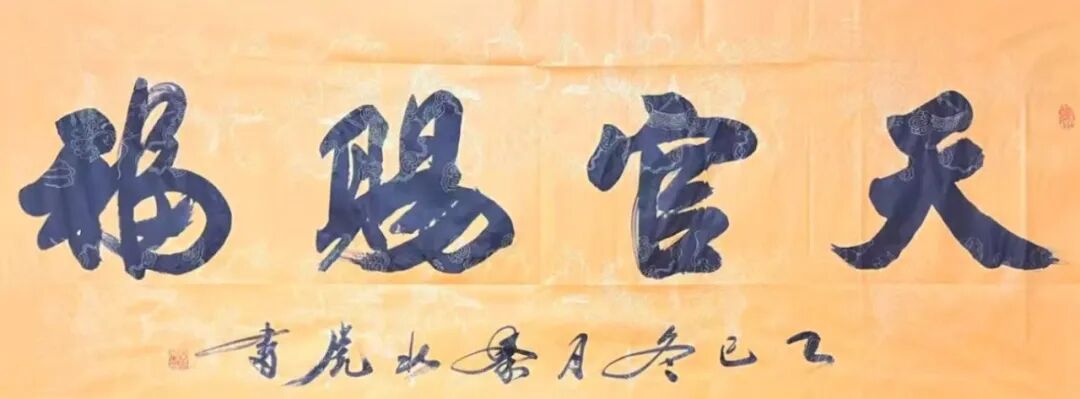 天官赐福
乙巳冬月 水虎書